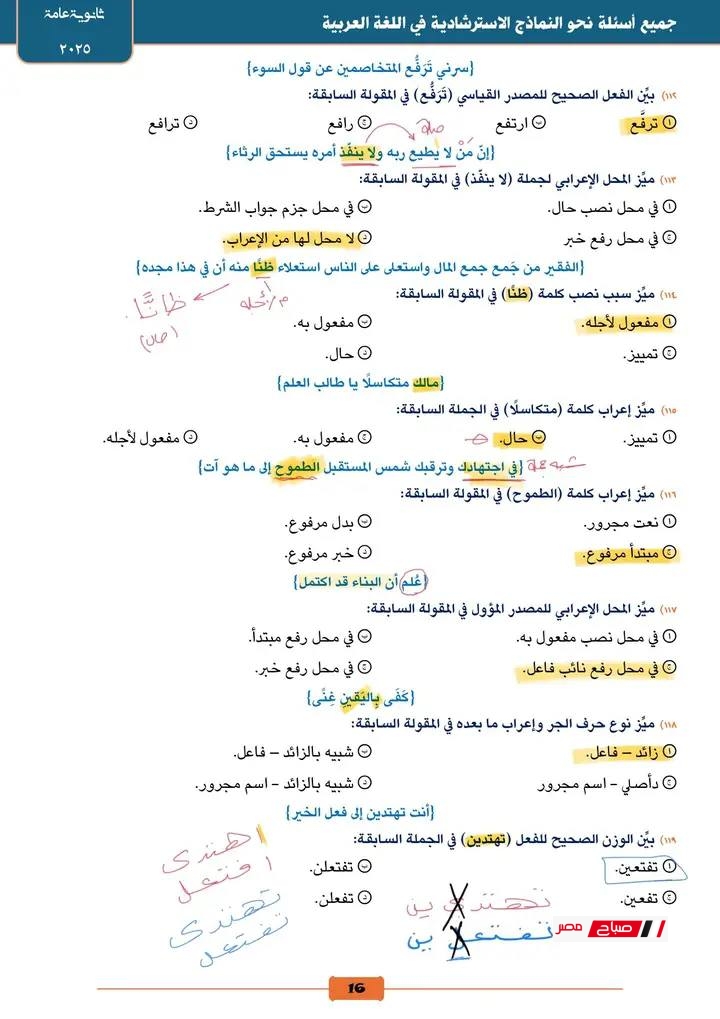 جميع أسئلة نحو النماذج الاسترشادية في اللغة العربية
ثانوية عامة
٢٠٢٥
{سرني تَرَفُّع المتخاصمين عن قول السوء}
١١٢) بيِّن الفعل الصحيح للمصدر القياسي (تَرَفُّع) في المقولة السابقة:
أ ترفَّع ب ارتفع ج رافع د ترافع
صلة
{إنّ مَنْ لا يطيع ربه ولا ينفّذ أمره يستحق الرثاء}
١١٣) ميِّز المحل الإعرابي لجملة (لا ينفّذ) في المقولة السابقة:
أ في محل نصب حال. ب في محل جزم جواب الشرط.
ج في محل رفع خبر د لا محل لها من الإعراب.
{الفقير من جَمع جمع المال واستعلى على الناس استعلاء ظنًّا منه أن في هذا مجده}
١١٤) ميِّز سبب نصب كلمة (ظنًّا) في المقولة السابقة:
م/أجله
ظانًّا
(حال)
أ مفعول لأجله. ب مفعول به.
ج تمييز. د حال.
{مالك متكاسلًا يا طالب العلم}
١١٥) ميِّز إعراب كلمة (متكاسلًا) في الجملة السابقة:
أ تمييز. ب حال. ج مفعول به. د مفعول لأجله.
شبه جملة
{في اجتهادك وترقبك شمس المستقبل الطموح إلى ما هو آت}
١١٦) ميِّز إعراب كلمة (الطموح) في المقولة السابقة:
أ نعت مجرور. ب بدل مرفوع.
ج مبتدأ مرفوع. د خبر مرفوع.
{عُلم أن البناء قد اكتمل}
١١٧) ميِّز المحل الإعرابي للمصدر المؤول في المقولة السابقة:
أ في محل نصب مفعول به. ب في محل رفع مبتدأ.
ج في محل رفع نائب فاعل. ج في محل رفع خبر.
{كَفَى بِاليَقينِ غِنًى}
١١٨) ميِّز نوع حرف الجر وإعراب ما بعده في المقولة السابقة:
أ زائد – فاعل. ب شبيه بالزائد – فاعل.
ج دأصلي – اسم مجرور د شبيه بالزائد – اسم مجرور.
{أنت تهتدين إلى فعل الخير}
١١٩) بيِّن الوزن الصحيح للفعل (تهتدين) في الجملة السابقة:
أ تفتعين. ب تفتعلن.
ج تفعين. د تفعلن.
اهتدى
افتعل
تهتدى
تفتعل
تهتدى ين
تفتعل ين
صباح مصر
16